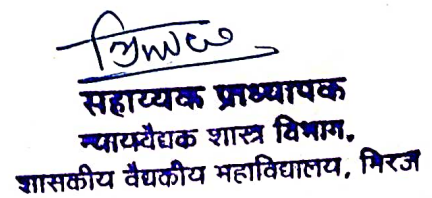 सहाय्यक प्राध्यापक
न्यायवैद्यक शास्त्र विभाग.
शासकीय वैद्यकीय महाविद्यालय, मिरज